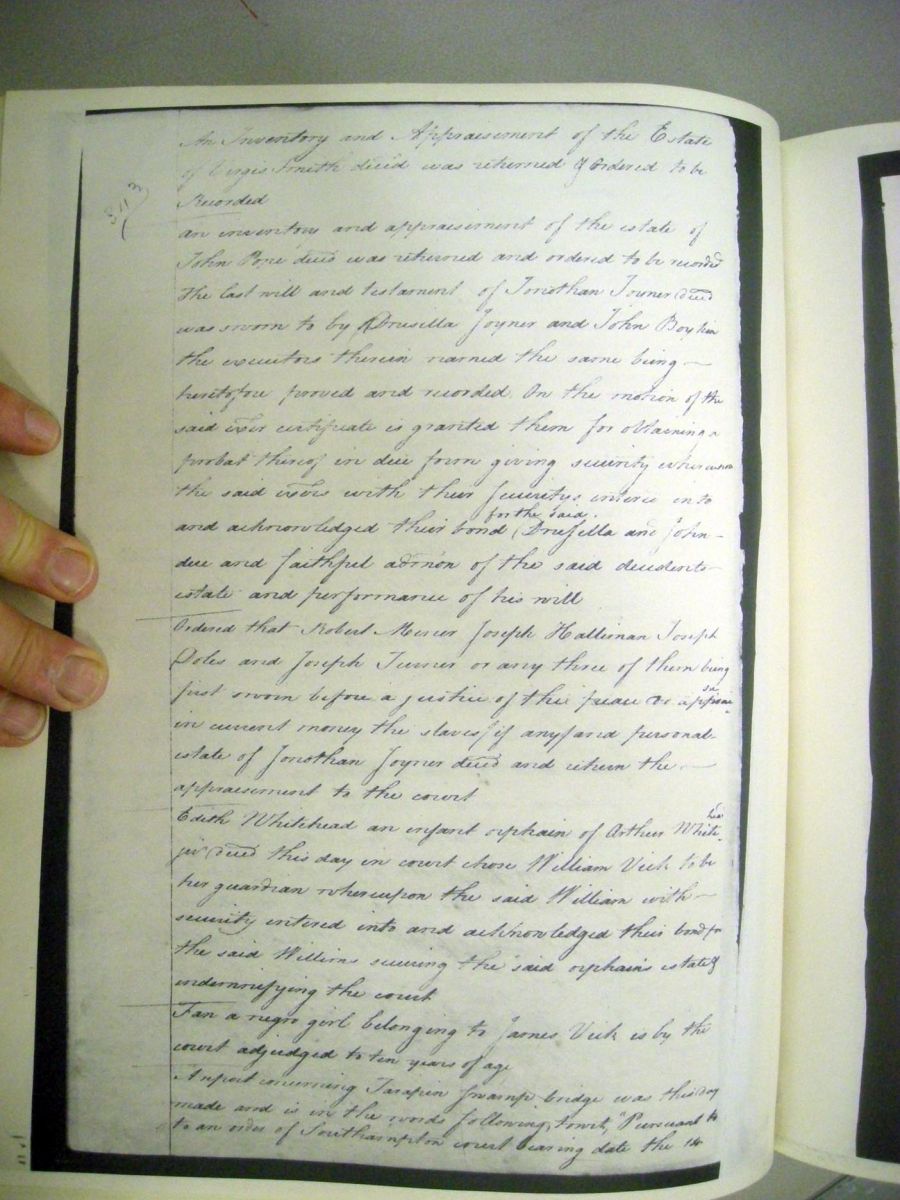 An Inventory and Appraisement of the Estate
of Virgis Smith dec'd was returned & Ordered to be
Recorded
343
an inventory and appraisement of the estate of
John Pope decd was returned and ordered to be recorded
The last will and testament of Jonothan Joyner decd
was sworn to by Drusilla Joyner and John Boykin
the executors therein named the same being
heretofore proved and recorded On the motion of the
said exor certificate is granted them for obtaining a
probat thereof in due form giving security whereupon
the said exors with their securitys entered into
and acknowledged their bond for the said Drusella and John
due and faithful admon of the said decedents
estate and performance of his will
Ordered that Robert Mercer Joseph Halleman Joseph
Doles and Joseph Turner or any three of them being
first sworn before a justice of the peace do appraise
in current money the slaves (if any) and personal
estate of Jonothan Joyner decd and return the
appraisement to the court
Edith Whitehead an infant orphain of Arthur Whitehead
jur decd this day in court chose William Vick to be
her guardian whereupon the said William with
security entered into and acknowledged their bond for
the said Williams securing the said orphain's estate &
indemnifying the court
Fan a negro girl belonging to James Vick is by the
court adjudged to ten years of age
A report concerning Tarapin Swamp bridge was this day
made and is in the words following, towit, "Pursuant to
to an order of Southampton court bearing date the 14